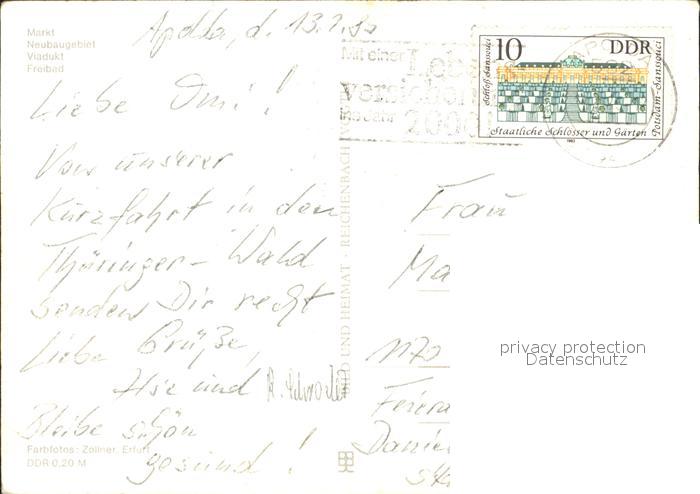 Markt
Neubaugebiet
Viadukt
Freibad
Apolda, d. 13.7.85
Liebe Omi!
Von unserer
Kurzfahrt in den
Thüringer-Wald
senden Dir recht
Liebe Grüße,
Ilse und
Bleibe schön
gesund!
Farbfotos: Zöllner, Erfurt
DDR 0,20 M
BILD UND HEIMAT · REICHENBACH
Mit einer
Leb
versicher
ins Jahr
2000
10 DDR
Schloß Sanssouci
Potsdam-Sanssouci
Staatliche Schlösser und Gärten
1983
Frau
Ma
1170
Feiera
Danie
privacy protection
Datenschutz